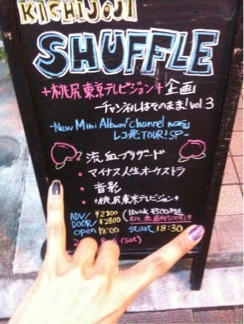 KICHIJOJI
SHUFFLE
+桃尻東京テレビジョン+企画
―チャンネルはそのまま! vol 3
-New Mini Album "channel
レコ発TOUR! SP-
・流血ブリザード
・マイナス人生オーケストラ
・音影
・桃尻東京テレビジョン
ADV/¥2300
DOOR/¥2800
open 18:00 start 18:30
(sat)